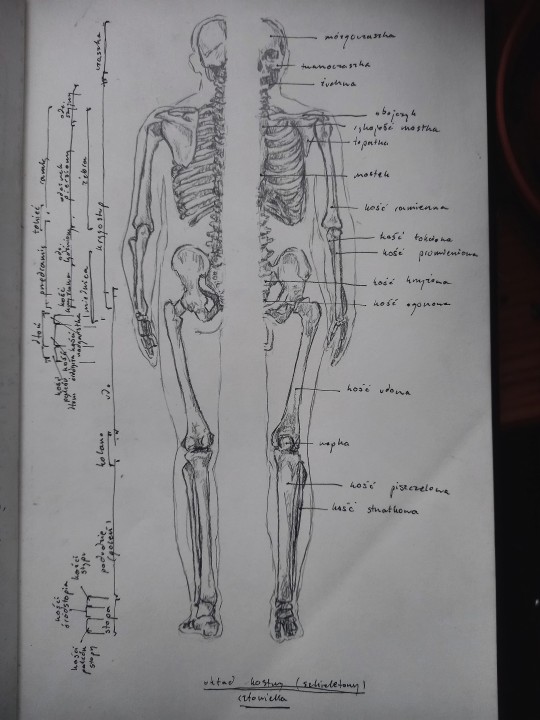 mózgoczaszka
twarzoczaszka
żuchwa
obojczyk
rękojeść mostka
łopatka
mostek
kość ramienna
kość łokciowa
kość promieniowa
kość krzyżowa
kość ogonowa
kość udowa
rzepka
kość piszczelowa
kość strzałkowa
czaszka
odc. szyjny
odcinek piersiowy
żebra
kręgosłup
ramię
łokieć
przedramię
dłoń
miednica
kości nadgarstka
udo
kolano
podudzie
(goleń)
stopa
kości stępu
kości śródstopia
kości palców stopy
układ kostny (szkieletowy)
człowieka